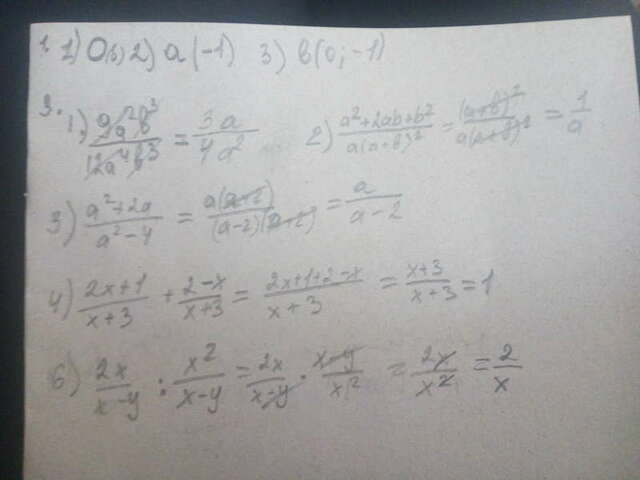 1. 1) O(6) 2) a (-1) 3) b(0; -1)
3. 1) 9a²b³/12a⁴b³ = 3a/4a² 2) a²+2ab+b²/a(a+b)² = (a+b)²/a(a+b)² = 1/a
3) a²+2a/a²-4 = a(a+2)/(a-2)(a+2) = a/a-2
4) 2x+1/x+3 + 2-x/x+3 = 2x+1+2-x/x+3 = x+3/x+3 = 1
6) 2x/x-y : x²/x-y = 2x/x-y · x-y/x² = 2x/x² = 2/x